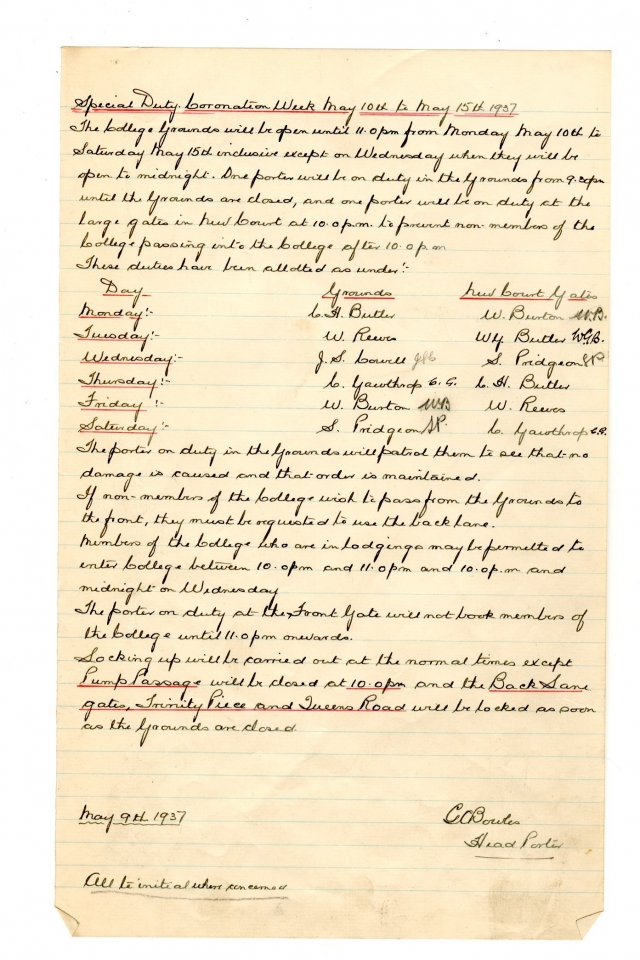 Special Duty. Coronation Week May 10th to May 15th 1937
The College Grounds will be open until 11.0pm from Monday May 10th to
Saturday May 15th inclusive except on Wednesday when they will be
open to midnight. One porter will be on duty in the Grounds from 9.30pm
until the Grounds are closed, and one porter will be on duty at the
large gates in New Court at 10.0p.m. to prevent non-members of the
College passing into the College after 10.0pm
These duties have been allotted as under:-
Day Grounds New Court Gates
Monday:- C.H. Butler W. Burton W.B.
Tuesday:- W. Reeves WG Butler W.G.B.
Wednesday:- J.S. S. Pridgeon SP
Thursday:- C. Gawthrop C.G. C.H. Butler
Friday:- W. Burton W.B W. Reeves
Saturday:- S. Pridgeon S.P. C. Gawthrop C.G.
The porter on duty in the Grounds will patrol them to see that no
damage is caused and that order is maintained.
If non-members of the College wish to pass from the Grounds to
the front, they must be requested to use the back lane.
Members of the College who are in lodgings may be permitted to
enter College between 10.0pm and 11.0pm and 10.0p.m and
midnight on Wednesday
The porter on duty at the Front Gate will not book members of
the College until 11.0pm onwards.
Locking up will be carried out at the normal times except
Pump Passage will be closed at 10.0pm and the Back Lane
gates, Trinity Piece and Queens Road will be locked as soon
as the Grounds are closed.
May 9th 1937
Head Porter
All to initial where concerned